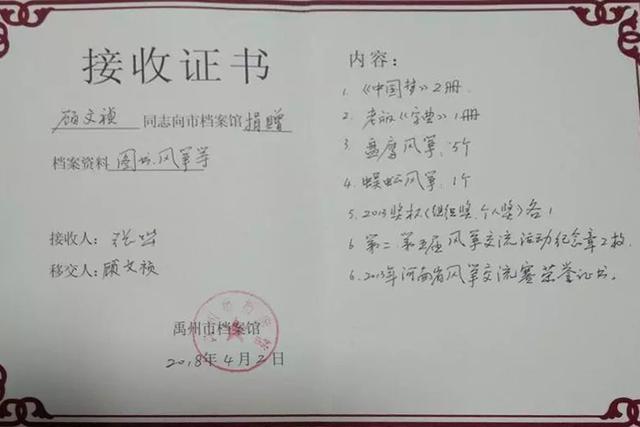 接收证书
顾文祯同志向市档案馆捐赠
档案资料图书.风筝等
接收人：
移交人：顾文祯
禹州市档案馆
2018年4月2日
内容：
1.《中国梦》2册.
2.老版《字典》1册
3.盘鹰风筝:5个
4.蜈蚣风筝:1个
5.2013奖杯(组织奖.个人奖)各1
6.第二.第五届风筝交流活动纪念章2枚.
6.2013年河南省风筝交流赛荣誉证书.